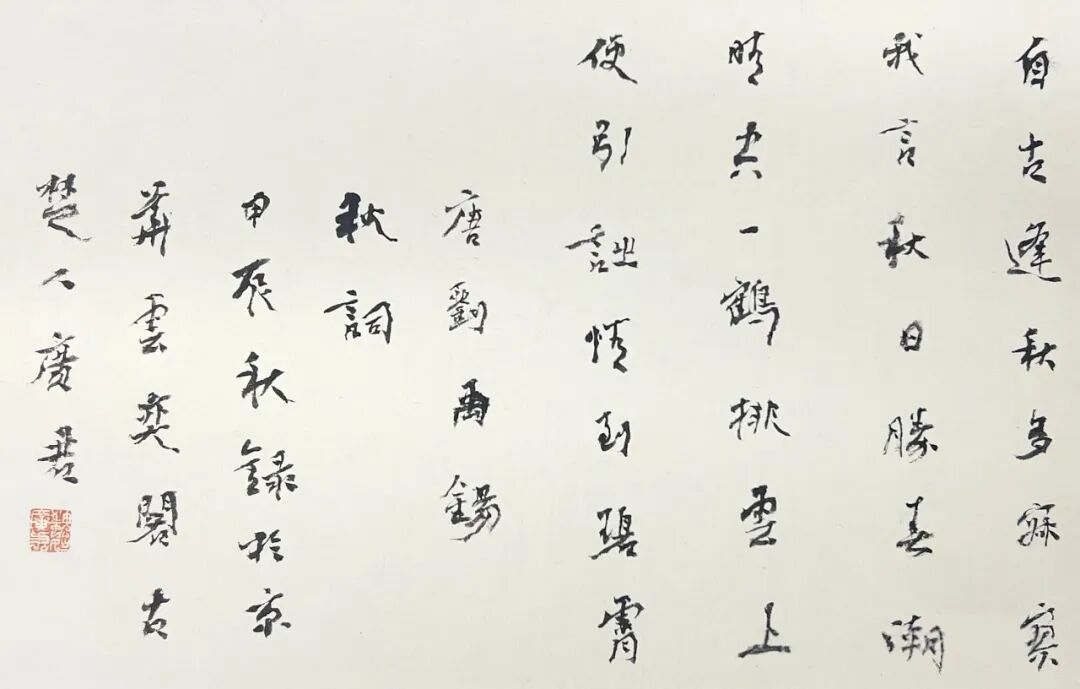 自古逢秋多寂寥
我言秋日勝春潮
晴空一鶴排雲上
便引詩情到碧霄
唐劉禹錫
秋詞
甲辰秋錄於京
華雲奕閣古
楚人廣君